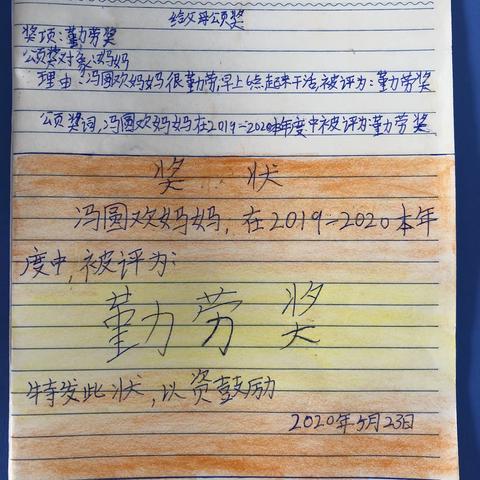 给父母颁奖
奖项:勤劳奖
颁奖对象:妈妈
理由:冯圆欢妈妈很勤劳,早上6点起来干活,被评为:勤劳奖
颁奖词,冯圆欢妈妈在2019=2020本年度中被评为勤劳奖
奖状
冯圆欢妈妈,在2019=2020本年
度中,被评为:
勤劳奖
特发此状,以资鼓励
2020年5月23日